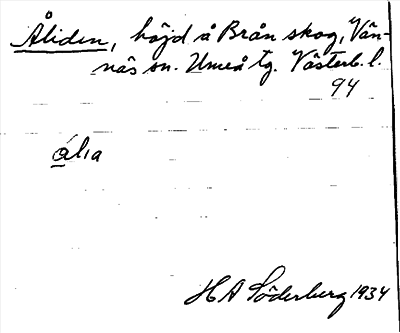 Åliden, höjd å Brån skog, Vän-
näs sn. Umeå tg. Västerb. l.
94
ália
H A Söderberg 1934